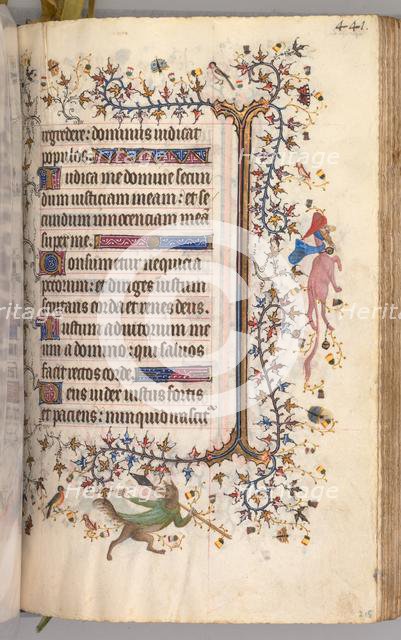 441.
regredere: dominus iudicat
populos.
Iudica me domine secun
dum iusticiam meam: et se
cundum innocenciam mea
super me.
Consumetur nequicia
peccorum: et diriges iustum
scrutans corda et renes deus.
Iustum adiutorium me
um a domino: qui saluos
facit rectos corde.
Deus iudex iustus fortis
et paciens: nunquid irascit
215
Heritage
Heritage
Heritage
Heritage
Heritage
Heritage